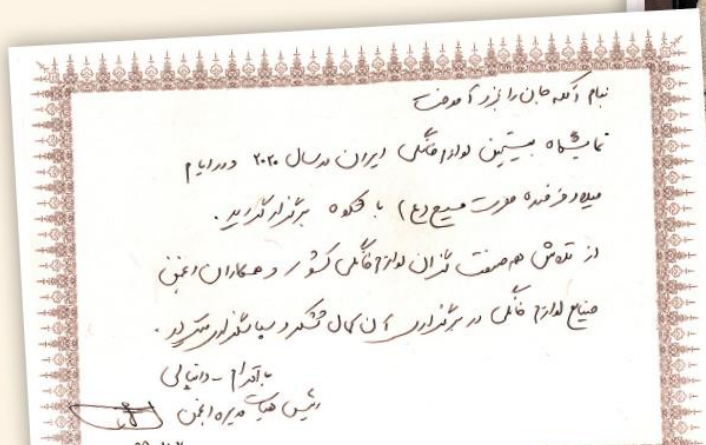 بنام آنکه جان را فکرت آموخت
نمایشگاه بیستمین لوازم خانگی ایران در سال ۲۰۲۰ و در ایام
میلاد فرخنده حضرت مسیح (ع) با شکوه برگزار گردید.
از تلاش همه صنعت گران لوازم خانگی کشور و همکاران انجمن
صنایع لوازم خانگی در برگزاری آن کمال تشکر و سپاسگزاری میگردد.
با احترام - دانیالی
رئیس هیات مدیره انجمن